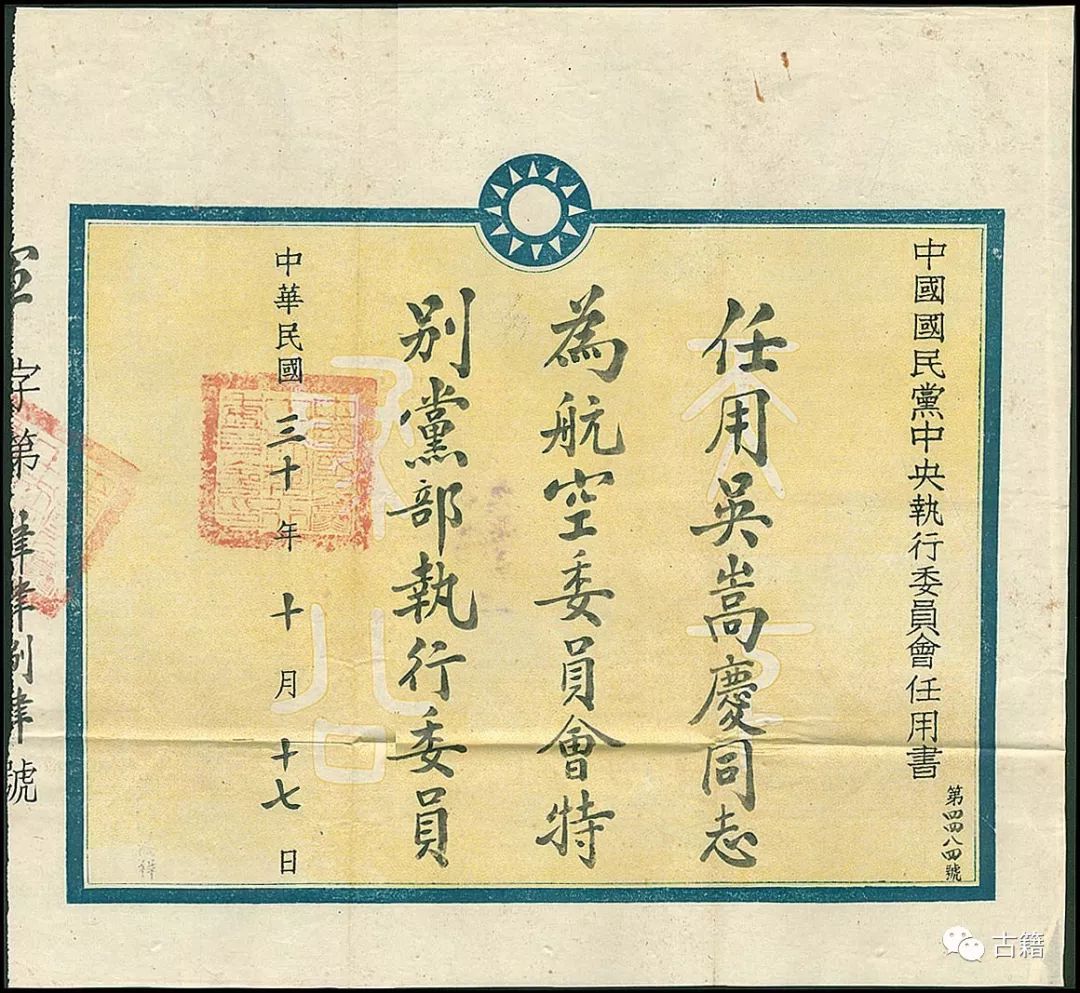 中國國民黨中央執行委員會任用書
第四四八四號
任用吳嵩慶同志
為航空委員會特
別黨部執行委員
中華民國三十年十月十七日
字第肆肆捌肆號
天下為公
古籍